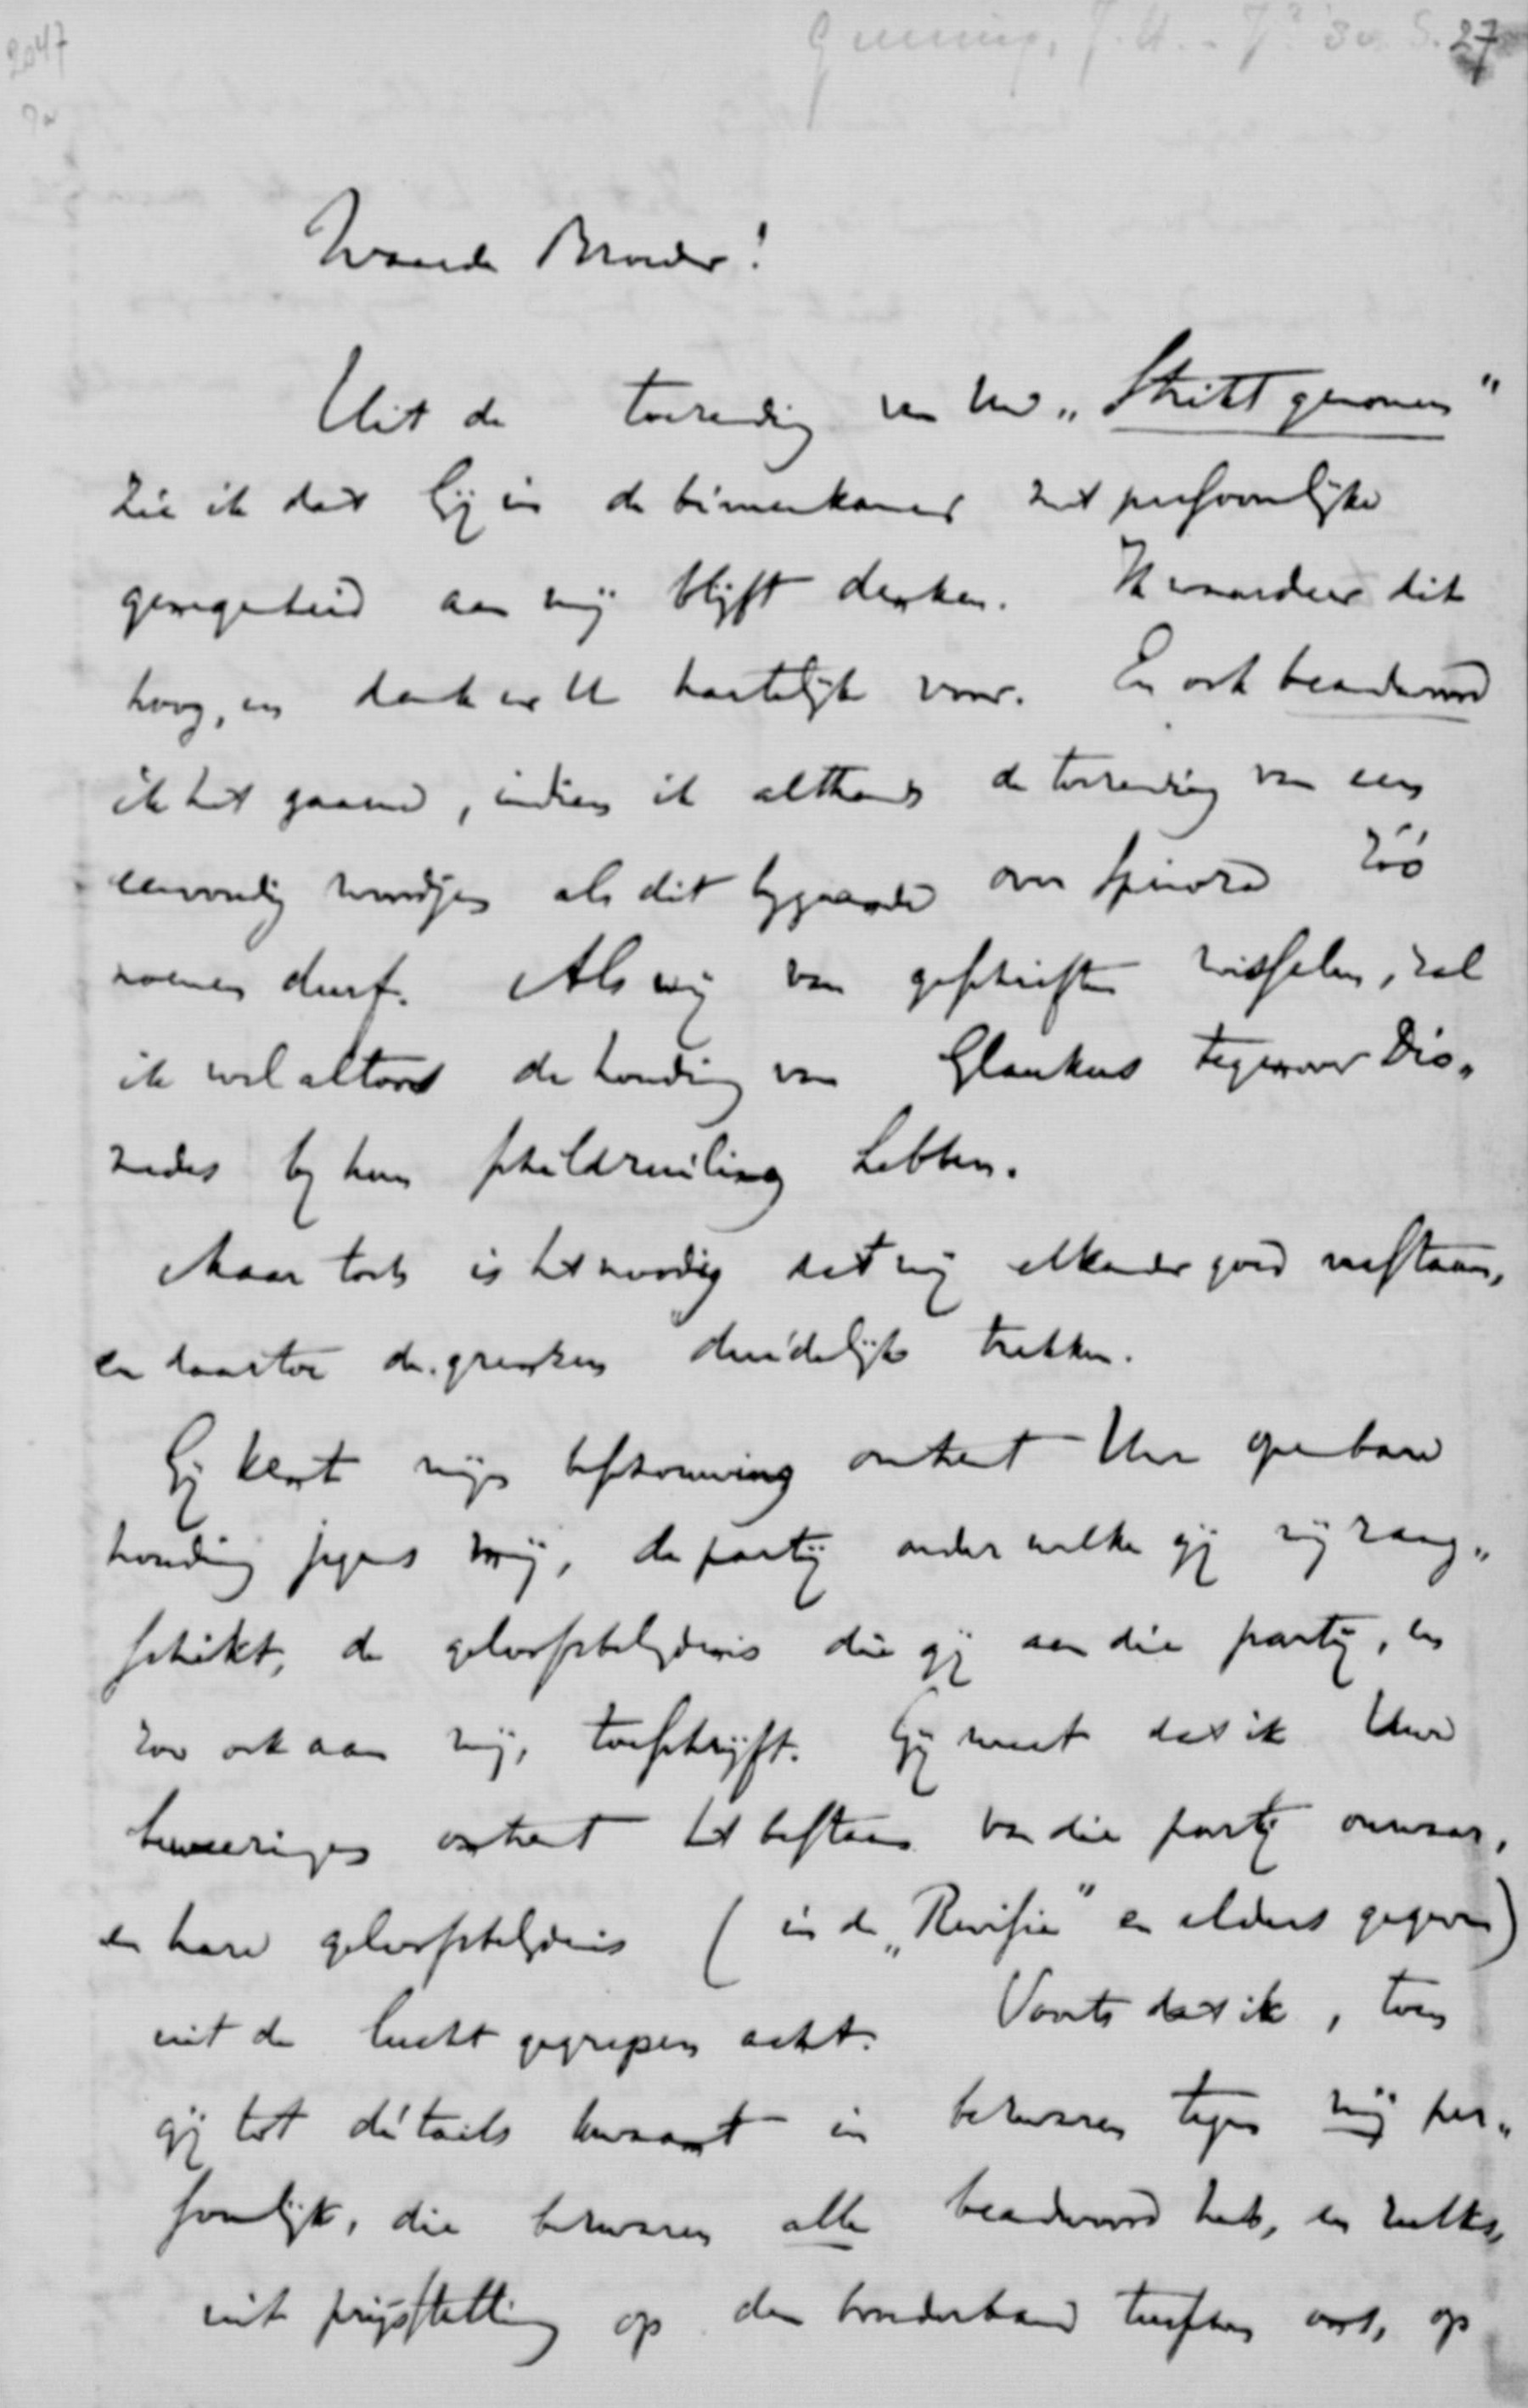 2047
Gunning, J.H. - Jr 30 S. 27
Waarde Broeder!
Uit de toezending van Uw „Strikt genomen"
zie ik dat Gij in de binnenkamer met persoonlijke
genegenheid aan mij blijft denken. Ik waardeer dit
hoog, en dank er U hartelijk voor. En ook beantwoord
ik het gaarne, indien ik althans de toezending van een
eenvoudig woordjen als dit bijgaande over Spinoza zóó
noemen durf. Als wij van geschriften wisselen, zal
ik wel altoos de houding van Glaukus tegenover Dio„
medes bij hun schildruiling hebben.
Maar toch is het noodig dat wij elkander goed verstaan,
en daartoe de grenzen duidelijk trekken.
Gij kent mijn beschouwing omtrent Uw openbare
houding jegens mij, de partij onder welke gij mij rang„
schikt, de geloofsbelijdenis die gij aan die partij, en
zoo ook aan mij, toeschrijft. Gij weet dat ik Uwe
beweeringen omtrent het bestaan van die partij onwaar,
en hare geloofsbelijdenis (in de „Revisie" en elders gegeven)
uit de lucht gegrepen acht. Voorts dat ik, toen
gij tot détails kwaamt in bezwaren tegen mij per„
soonlijk, die bezwaren alle beantwoord heb, en zulks,
uit prijsstelling op den broederband tusschen ons, op